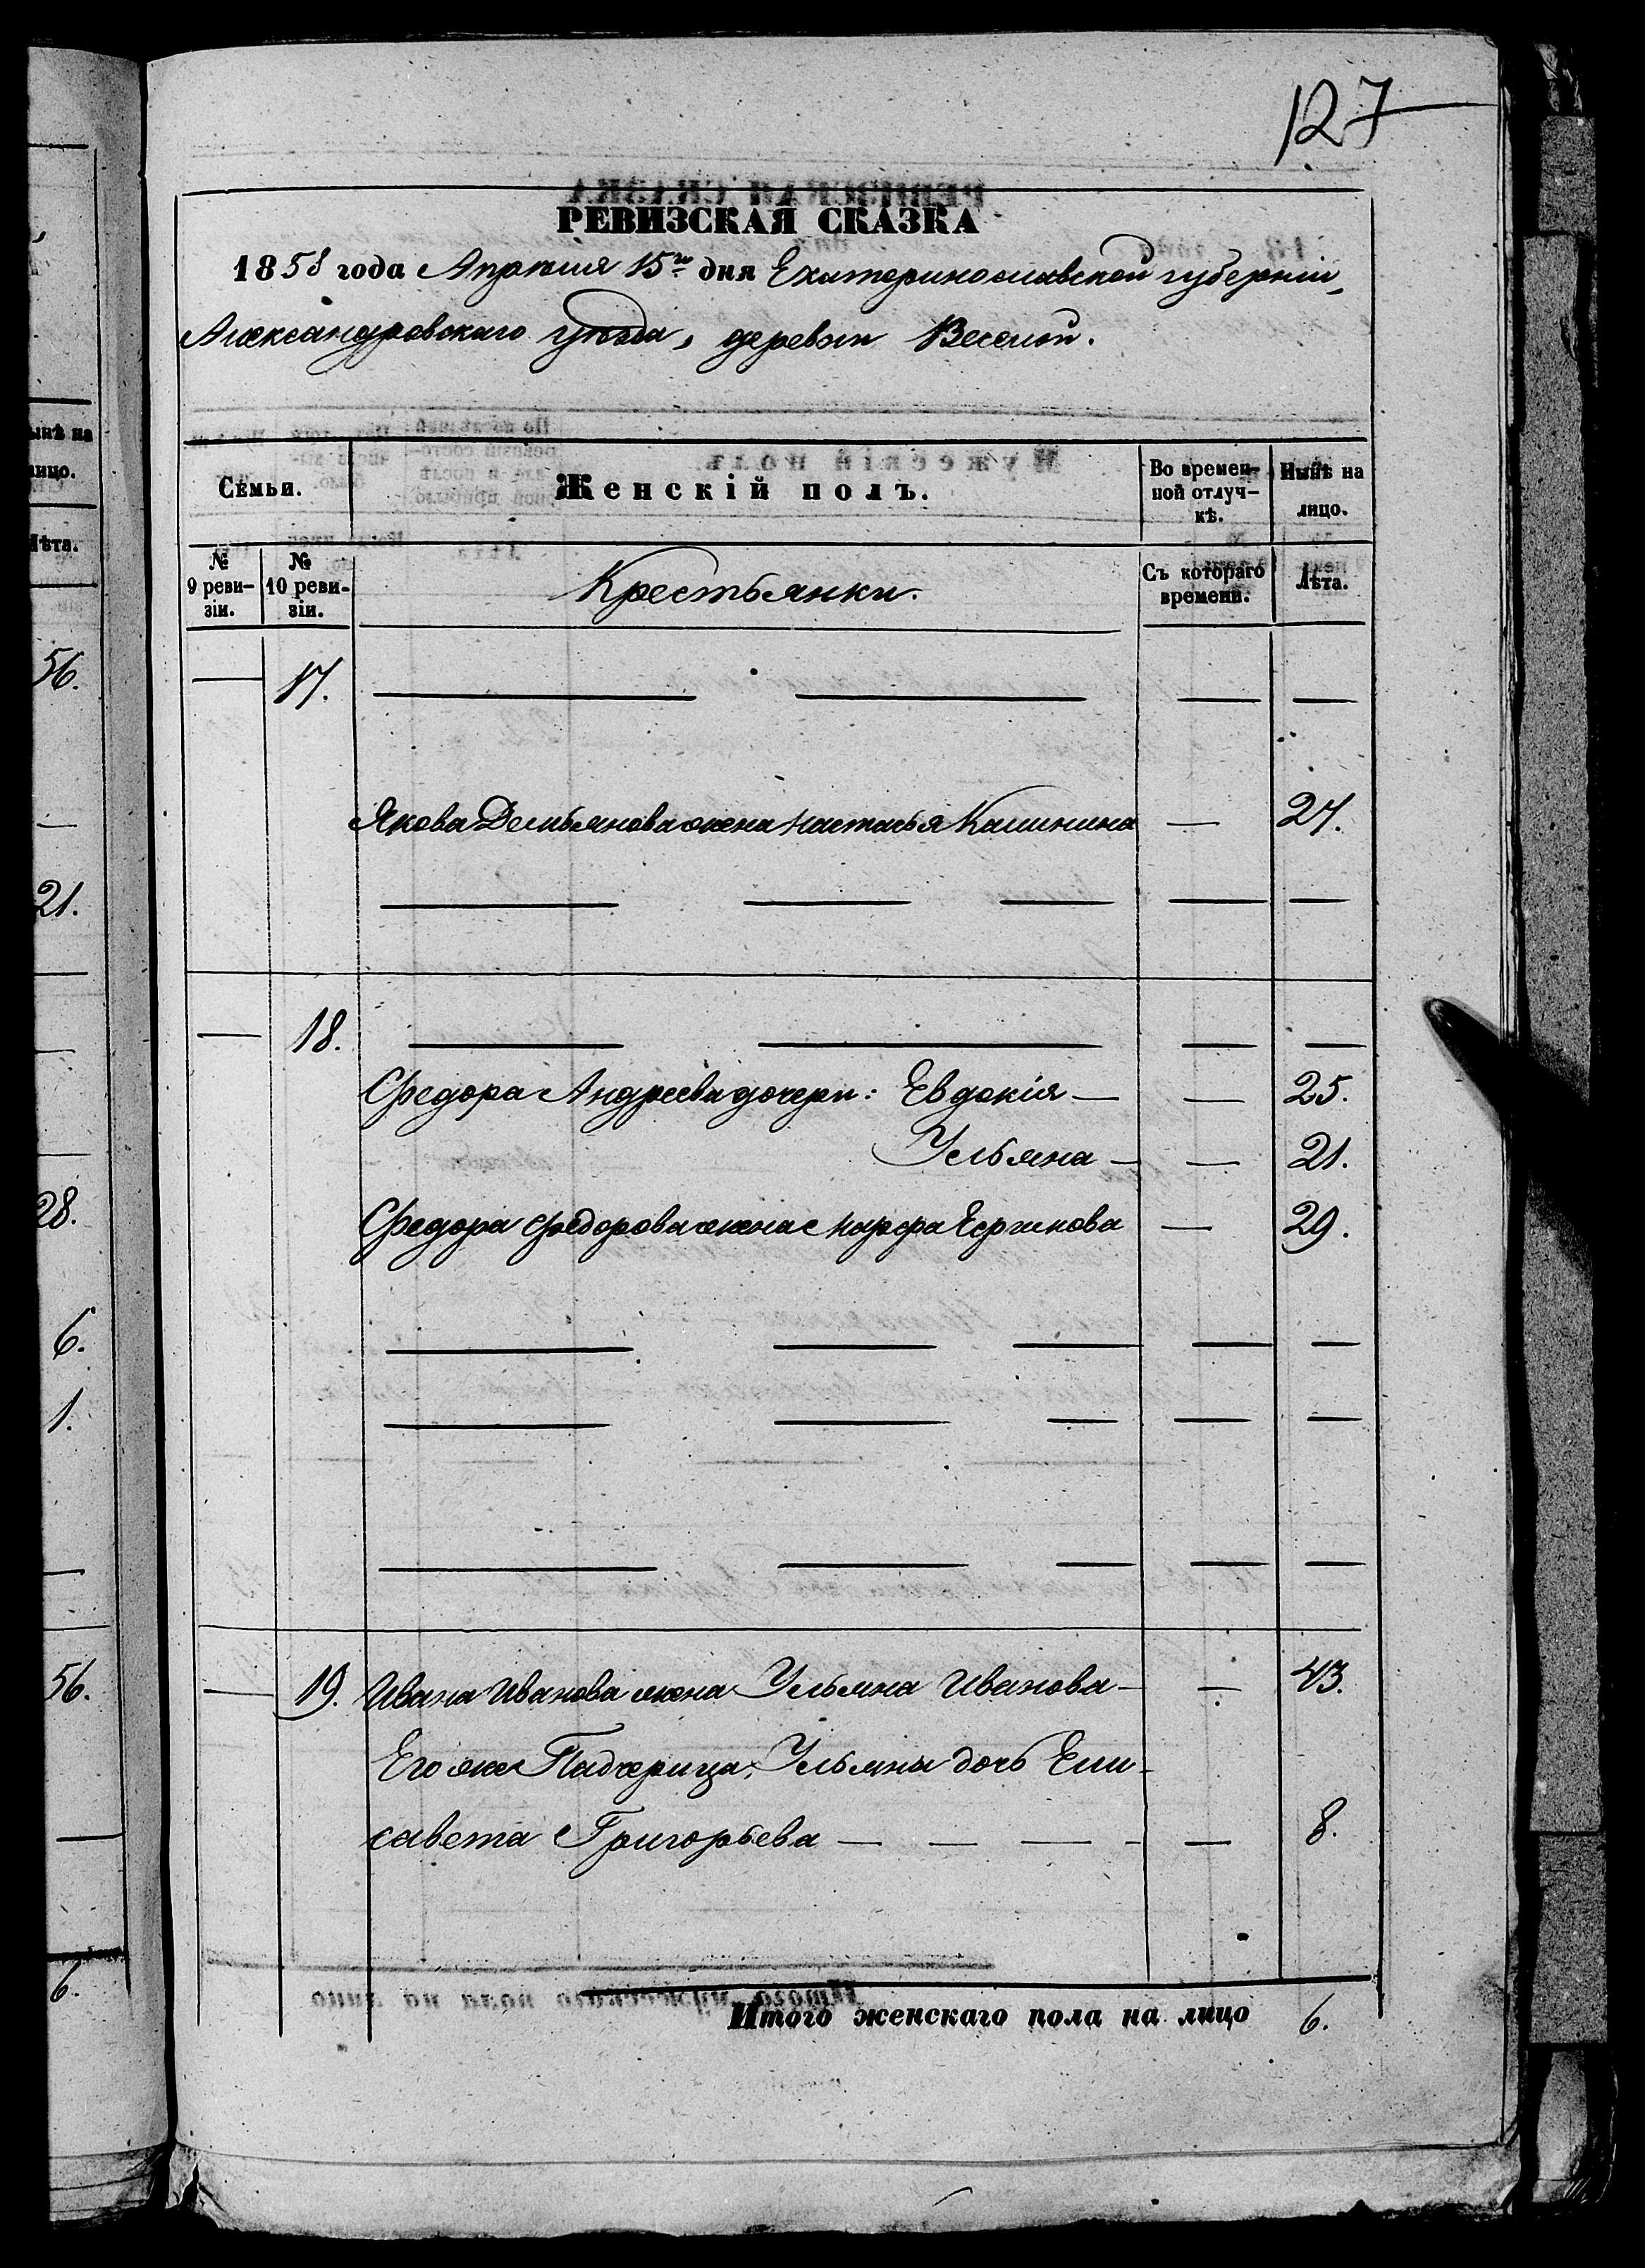 127
РЕВИЗСКАЯ СКАЗКА
1858 года Апреля 15го дня Екатеринославской губерніи,
Александровскаго уѣзда, деревни Веселой.
Семьи. Женскій полъ. Во времен- Нынѣ на
ной отлуч- лицо.
кѣ.
№ № Крестьянки. Съ котораго Лѣта.
9 реви- 10 реви- времени.
зіи. зіи.
— 17. — — — —
Якова Демьянова жена Настасья Калинина — 27.
— — — — —
— 18. — — — —
Федора Андреева дочери: Евдокія — — 25.
Ульяна — — 21.
Федора Федорова жена Марфа — 29.
— — — — —
— — — — —
— — — — —
— 19. Ивана Иванова жена Ульяна Иванова — — 43.
Его же Падчерица, Ульяны дочь Ели-
савета Григорьева — — — - — 8.
Итого женскаго пола на лицо 6.
ынѣ на
лицо.
Лѣта.
56.
—
21.
—
—
28.
6.
1.
—
56.
—
6.